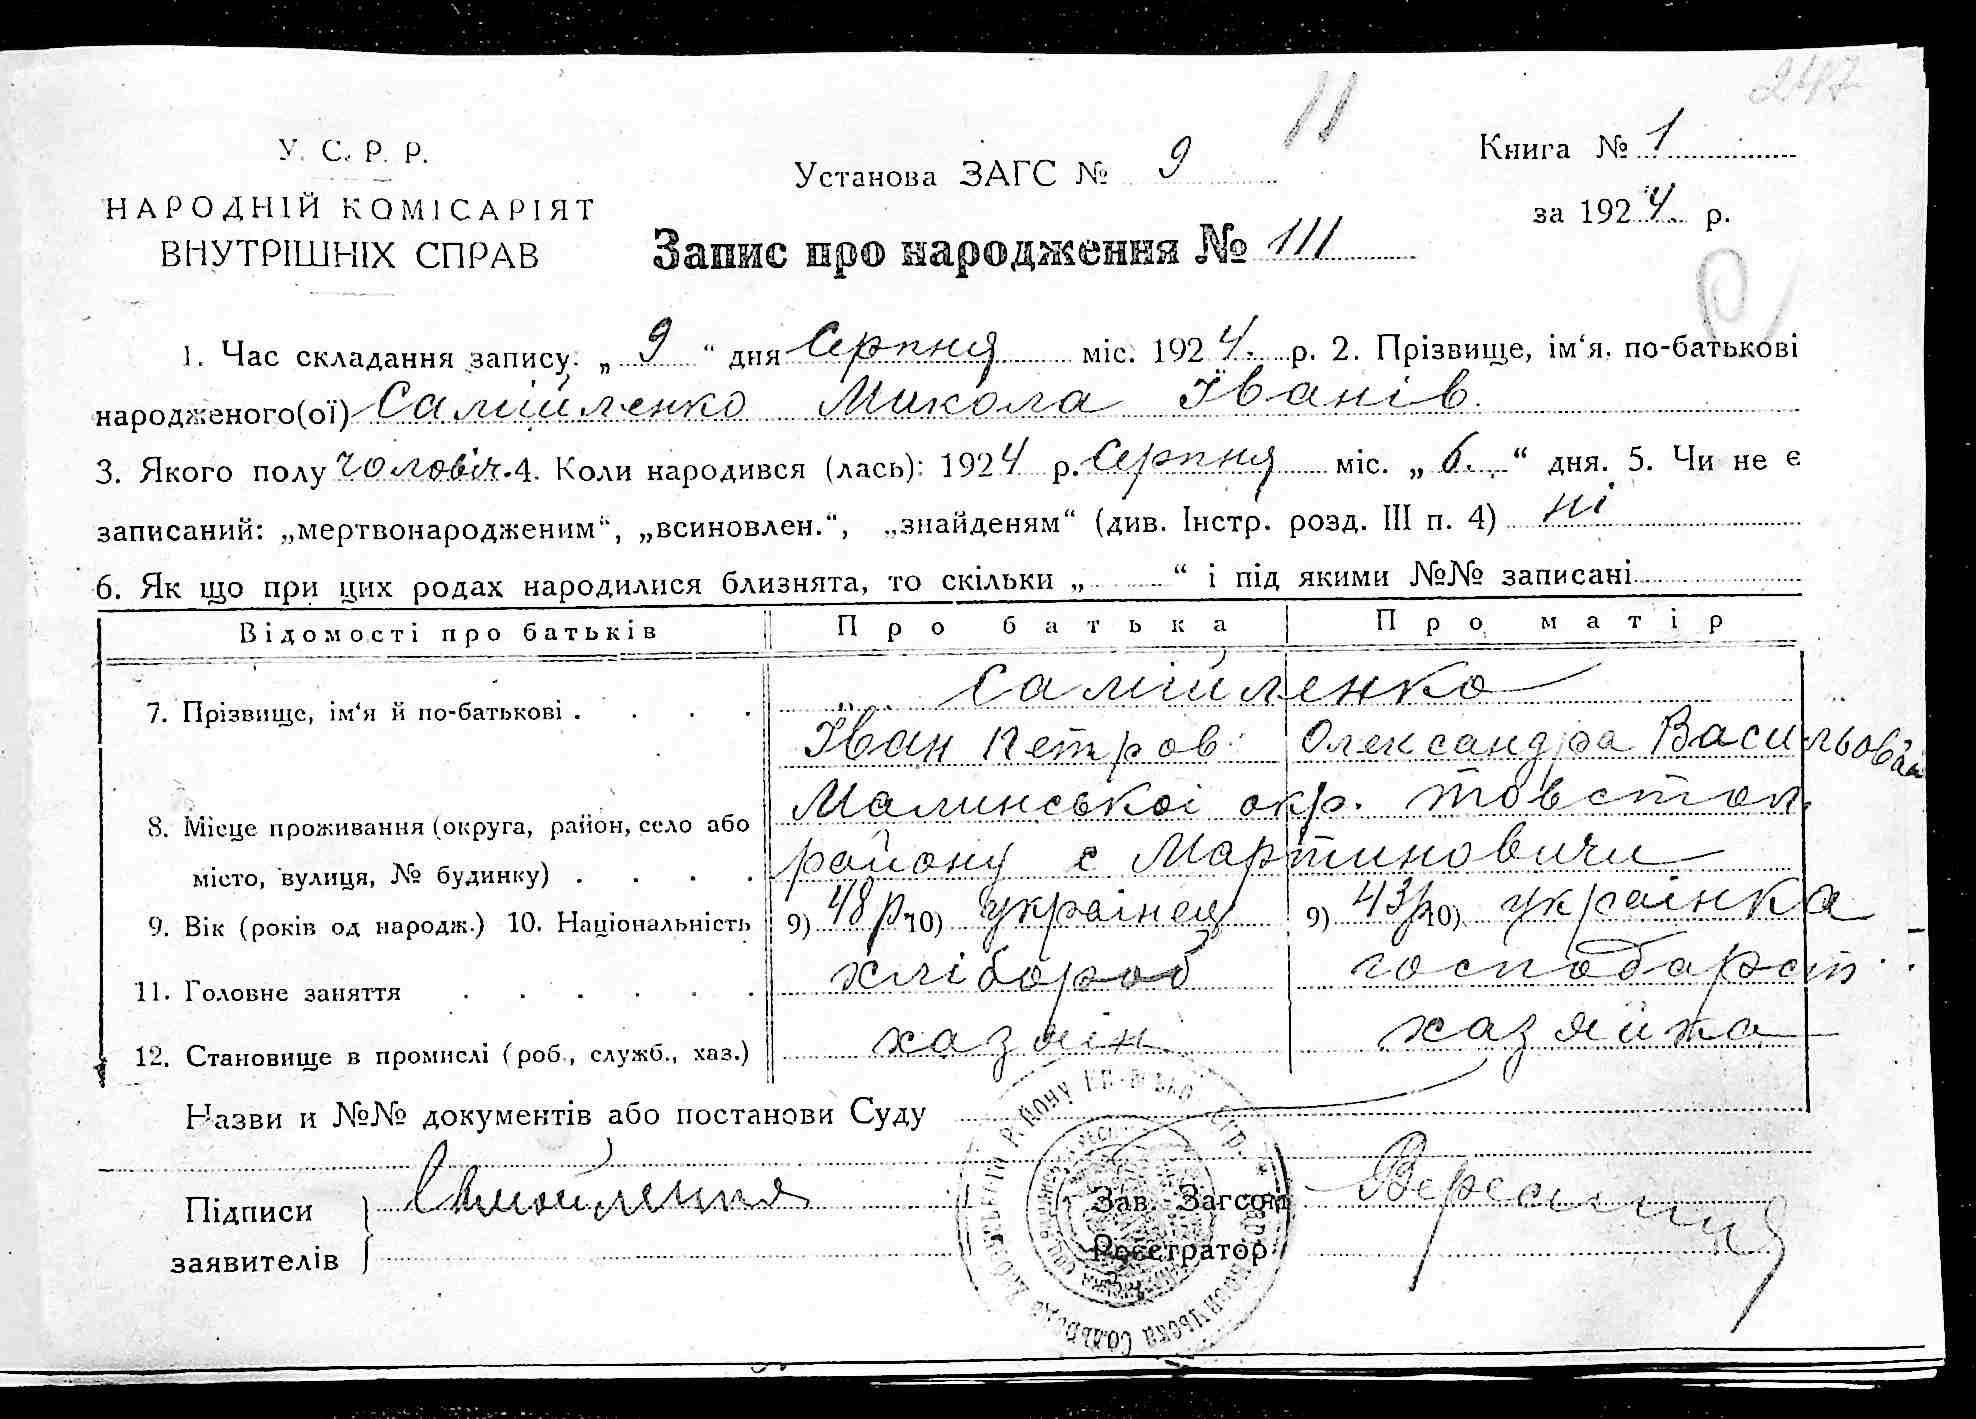 247
11
У. С. Р. Р.
НАРОДНІЙ КОМІСАРІЯТ
ВНУТРІШНІХ СПРАВ
Установа ЗАГС № 9
Книга № 1
за 1924 р.
Запис про народження № 111
1. Час складання запису: „ 9 “ дня Серпня міс. 1924. р. 2. Прізвище, ім‘я, по-батькові
народженого(ої) Самійленко Микола Іванів.
3. Якого полу чоловіч. 4. Коли народився (лась): 1924 р. Серпня міс. „ 6. “ дня. 5. Чи не є
записаний: „мертвонародженим“, „всиновлен.“, „знайденям“ (див. Інстр. розд. III п. 4) ні
6. Як що при цих родах народилися близнята, то скільки „ “ і під якими №№ записані
Відомості про батьків Про батька Про матір
7. Прізвище, ім‘я й по-батькові . . . . Самійленко
Іван Петров. Олександра Васильова
8. Місце проживання (округа, район, село або Малинської окр. Товстол.
місто, вулиця, № будинку) . . . . району с Мартиновичи
9. Вік (років од народж.) 10. Національність 9) 48 р. 10) українец 9) 43 р. 10) українка
11. Головне заняття . . . . . . хлібороб господарст.
12. Становище в промислі (роб., служб., хаз.) хазяін хазяйка
Назви и №№ документів або постанови Суду
Підписи
заявителів
Самойленко
Зав. Загсом
Реєстратор